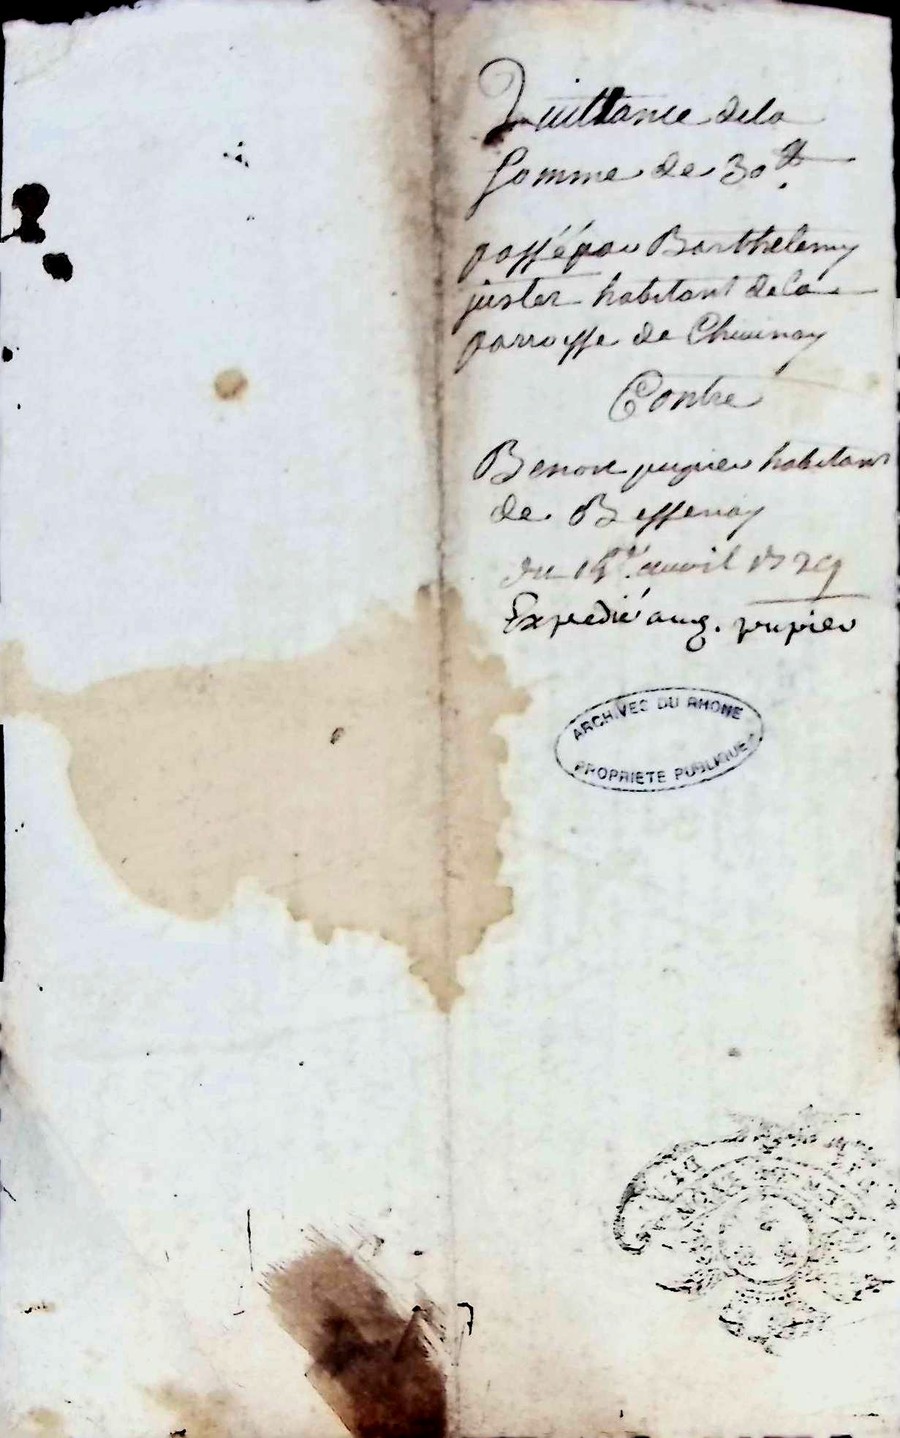 Quittance dela
Somme de 30 ₶
passé par Barthelemy
juster habitant dela
parroisse de Chevinay
Contre
Benoit pupier habitant
de Bessenay
du avril 1729
Expedié aug. pupier
ARCHIVES DU RHONE
PROPRIETE PUBLIQUE